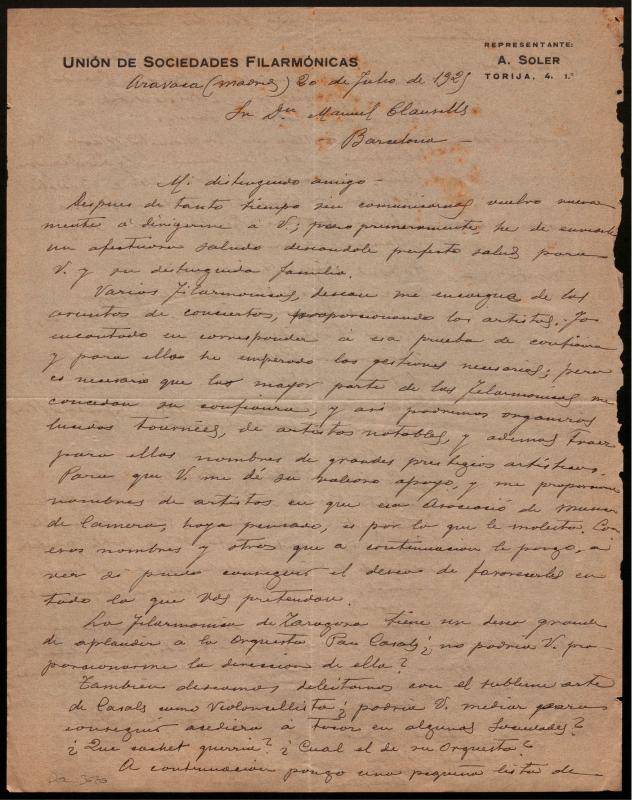 UNIÓN DE SOCIEDADES FILARMÓNICAS
REPRESENTANTE:
A. SOLER
TORIJA, 4. 1.º
Aravaca (Madrid) 20 de Julio de 1925
Sr Dn Manuel Clausells
- Barcelona -
Mi distinguido amigo -
Despues de tanto tiempo sin comunicarnos vuelvo nueva-
mente á dirigirme á V; pero primeramente, he de enviarle
un afectuoso saludo deseandole perfecta salud para
V. y su distinguida familia.
Varias Filarmonicas, desean me encargue de los
asuntos de conciertos, proporcionando los artistas. Yo
encantado en corresponder á esa prueba de confianza
y para ellas he empezado las gestiones necesarias; pero
es necesario que la mayor parte de las Filarmonicas me
concedan su confianza, y asi podriamos organizar
buenas tournées, de artistas notables, y ademas traer
para ellas nombres de grandes prestigios artisticos.
Para que V. me dé su valioso apoyo, y me proporcione
nombres de artistas en que esa Associació de Musica
de Camera, haya pensado, es por lo que le molesto. Con
esos nombres y otros que a continuacion le pongo, a
ver si puedo conseguir el deseo de favorecerles en
todo lo que Vds pretendan.
La Filarmonica de Zaragoza tiene un deseo grande
de aplaudir á la Orquesta Pau Casals ¿no podria V. pro-
porcionarme la direccion de ella?
Tambien deseamos deleitarnos con el sublime arte
de Casals como Violoncellista ¿podria V. mediar para
conseguir accediera á tocar en algunas Sociedades?
¿Que cachet querria? ¿Cual el de su Orquesta?
A continuacion pongo una pequeña lista de